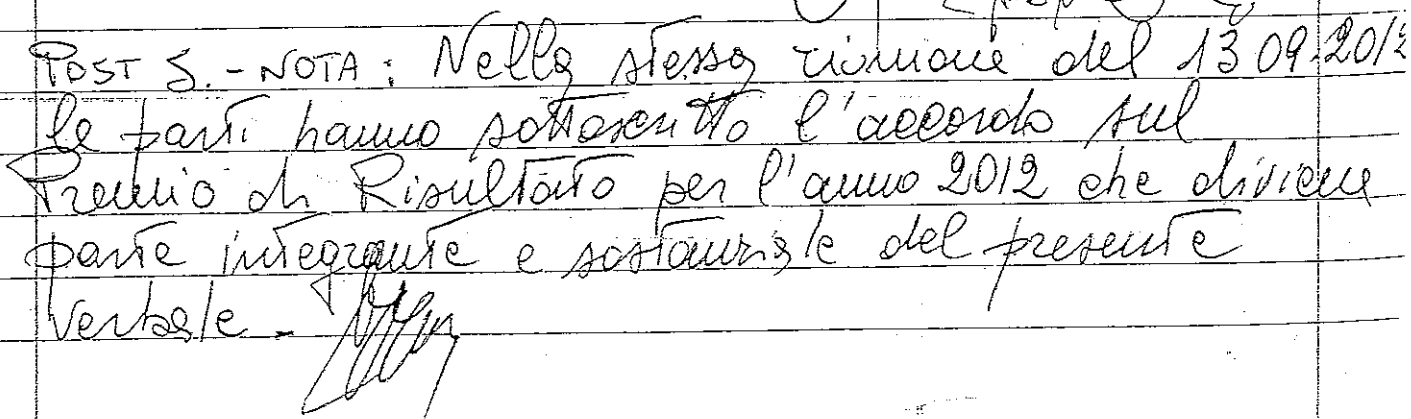 POST S. - NOTA : Nella stessa riunione del 13 09.2012
le parti hanno sottoscritto l'accordo sul
Premio di Risultato per l'anno 2012 che diviene
parte integrante e sostanziale del presente
verbale -